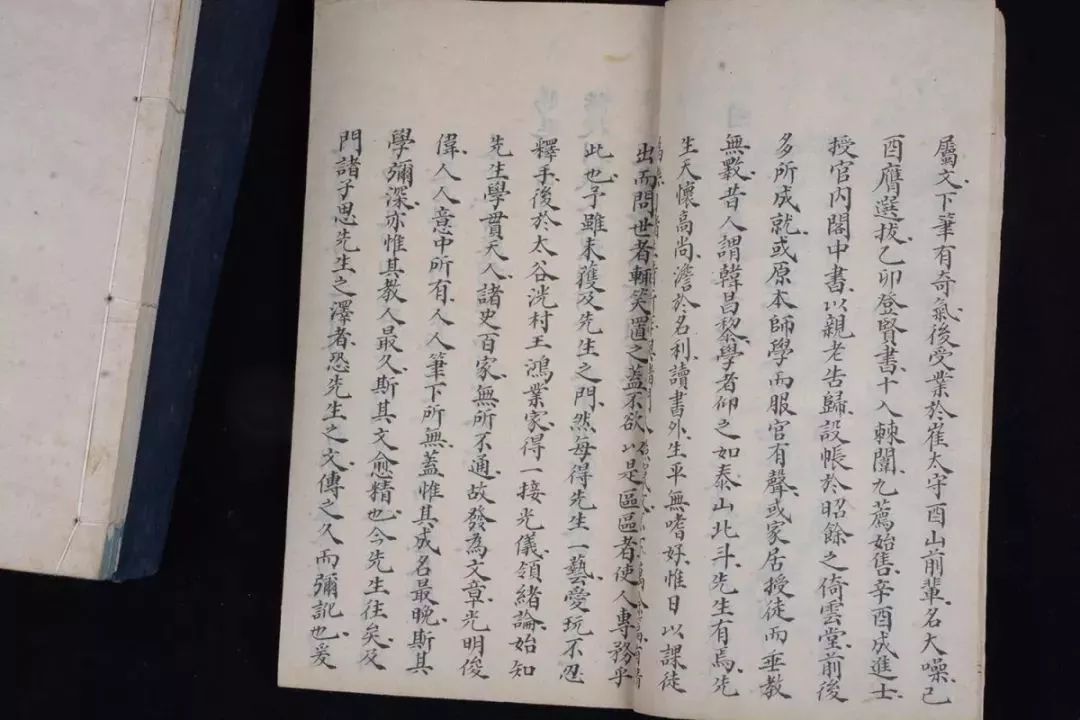 屬文下筆有奇氣後受業於崔太守酉山前輩名大噪己
酉膺選拔乙卯登賢書十入棘闈九薦始售辛酉成進士
授官内閣中書以親老告歸設帳於昭餘之倚雲堂前後
多所成就或原本師學而服官有聲或家居授徒而垂教
無數昔人謂韓昌黎學者仰之如泰山北斗先生有焉先
生天懷高尚澹於名利讀書外生平無嗜好惟日以課徒
出而問世者輒笑置之蓋不欲以是區區者使人專務乎
此也予雖未獲及先生之門然每得先生一藝愛玩不忍
釋手後於太谷洸村王鴻業家得一接光儀領緒論始知
先生學貫天人諸史百家無所不通故發為文章光明俊
偉人人意中所有人人筆下所無蓋惟其成名最晚斯其
學彌深亦惟其教人最久斯其文愈精也今先生往矣及
門諸子思先生之澤者恐先生之文傳之久而彌訛也爰